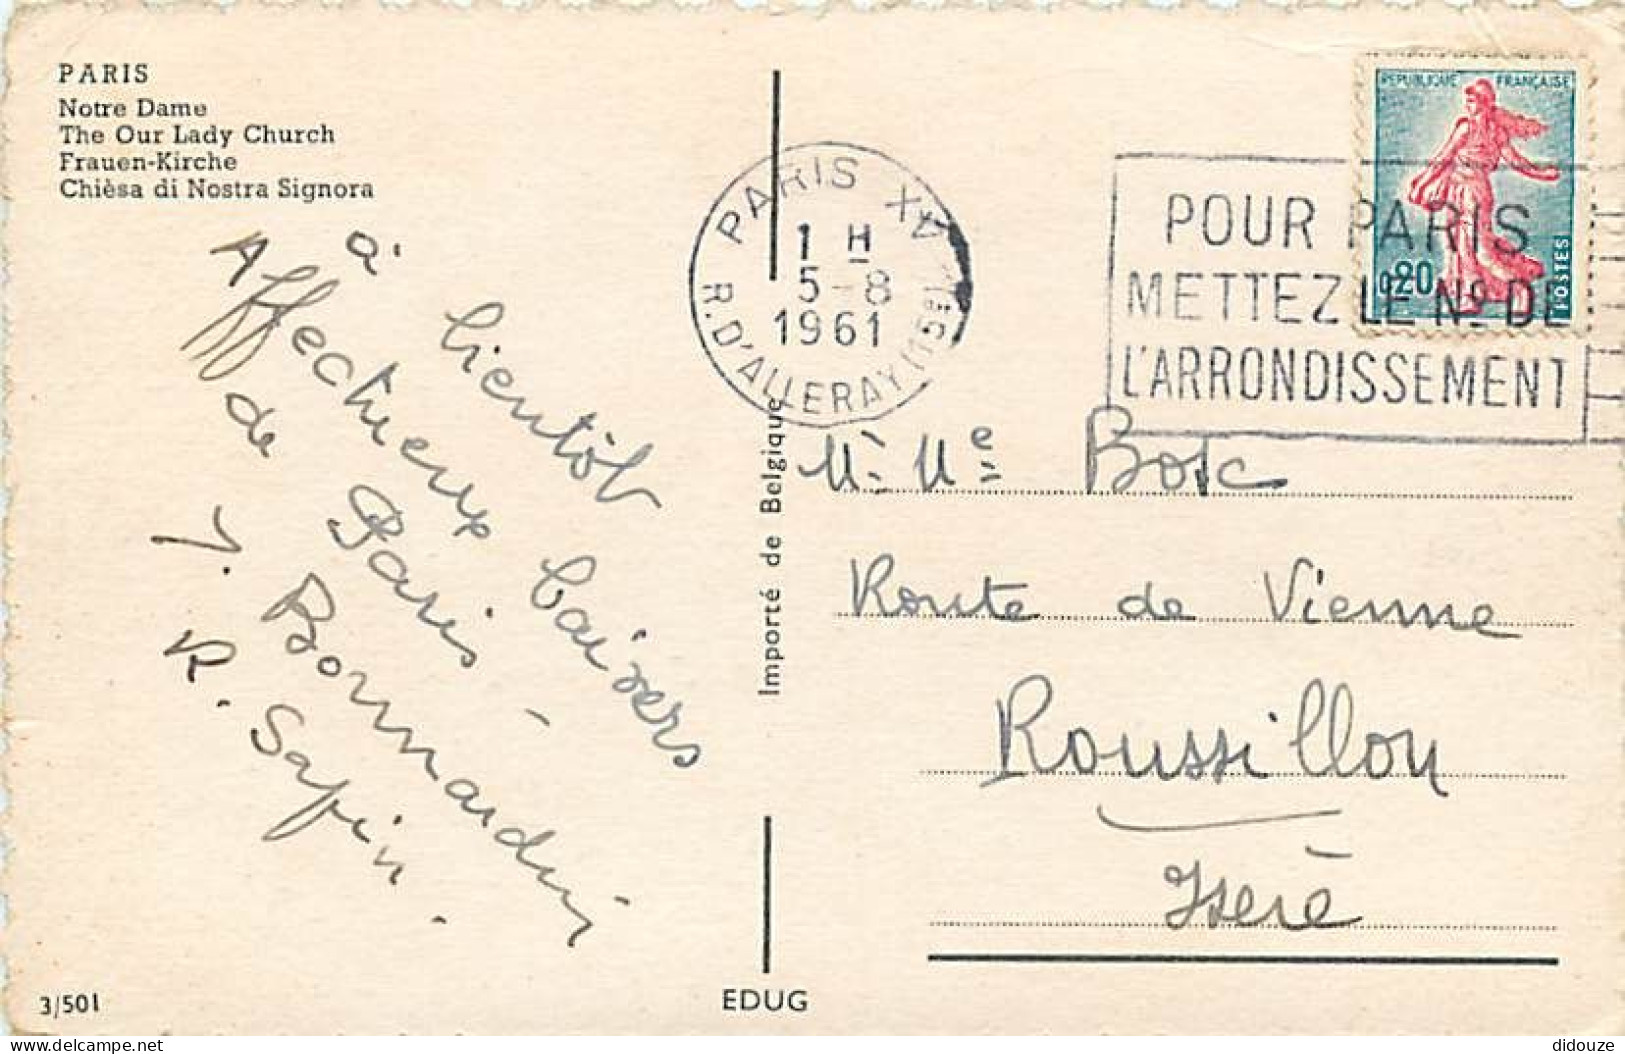 PARIS
Notre Dame
The Our Lady Church
Frauen-Kirche
Chièsa di Nostra Signora
à bientôt
Affectueux baisers
de Paris -
J. Bornardini
R. Safin.
3/501
Importé de Belgique
EDUG
PARIS XV
1 H
5-8
1961
R. D'ALLERAY (15e)
POUR PARIS
METTEZ LE No DE
L'ARRONDISSEMENT
REPUBLIQUE FRANÇAISE
0,20
POSTES
M. Me
Route de Vienne
Roussillon
Isère
delcampe.net
didouze